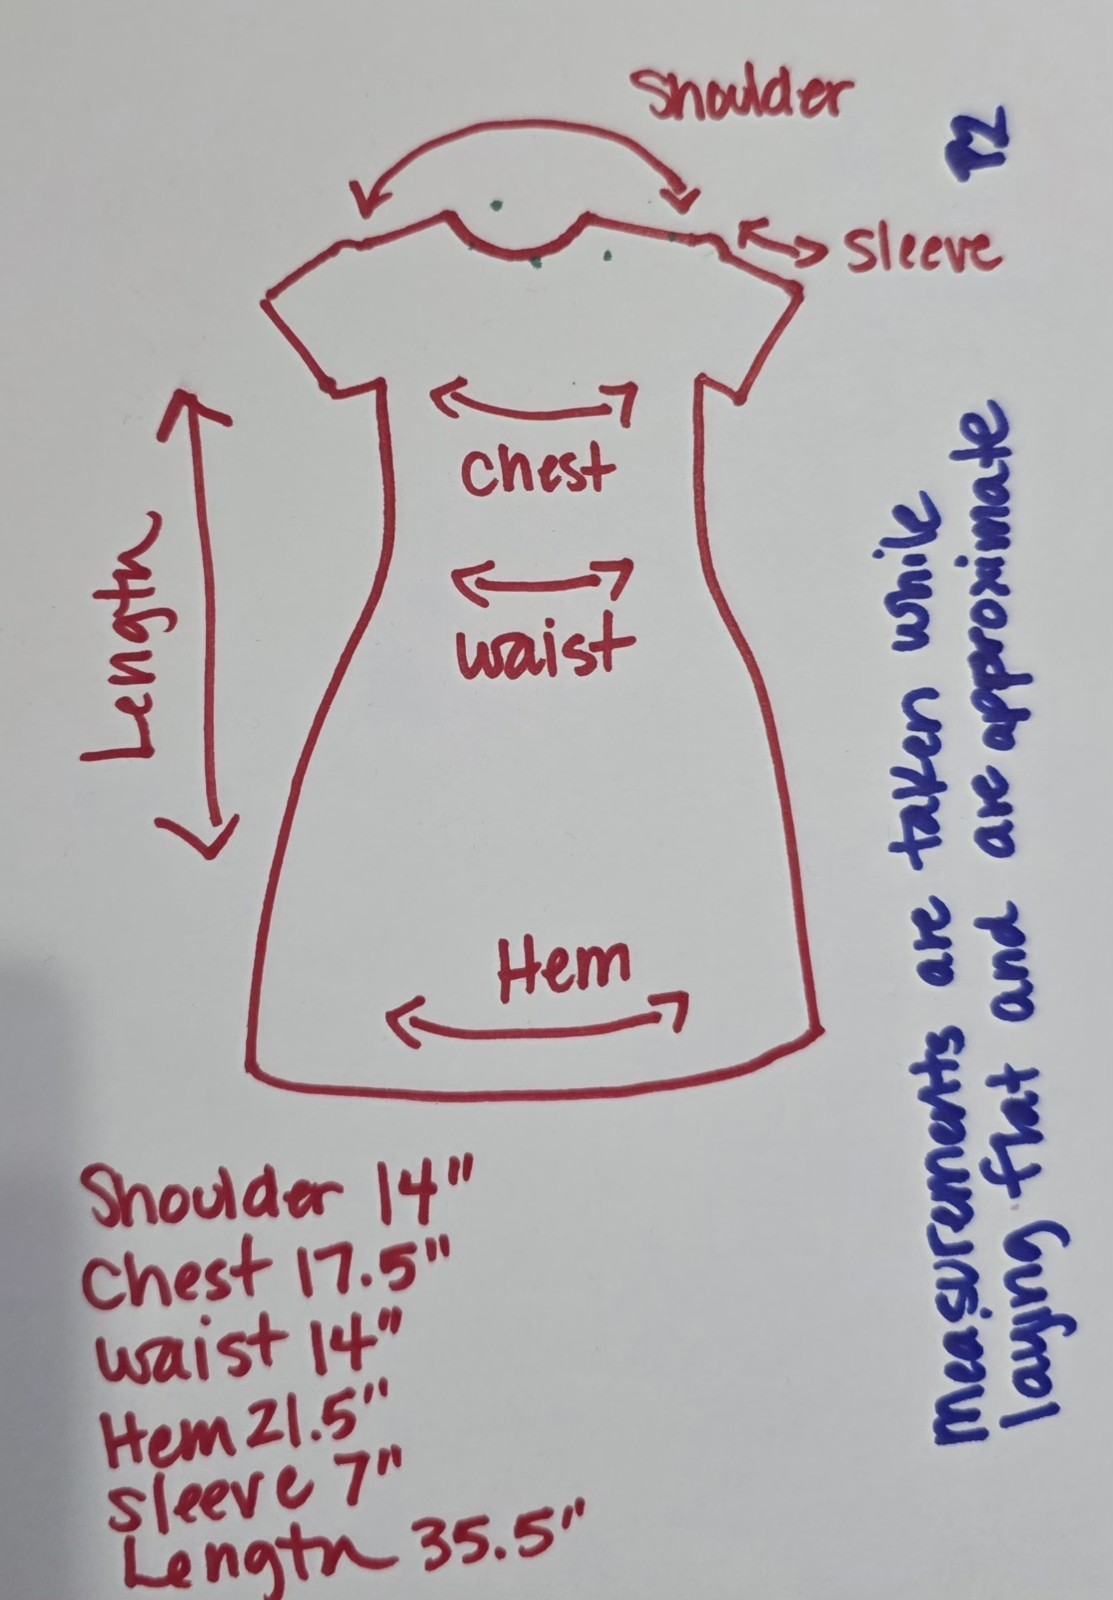 Shoulder
Sleeve
Length
Chest
waist
Hem
Shoulder 14"
Chest 17.5"
waist 14"
Hem 21.5"
sleeve 7"
Length 35.5"
measurements are taken while
laying flat and are approximate